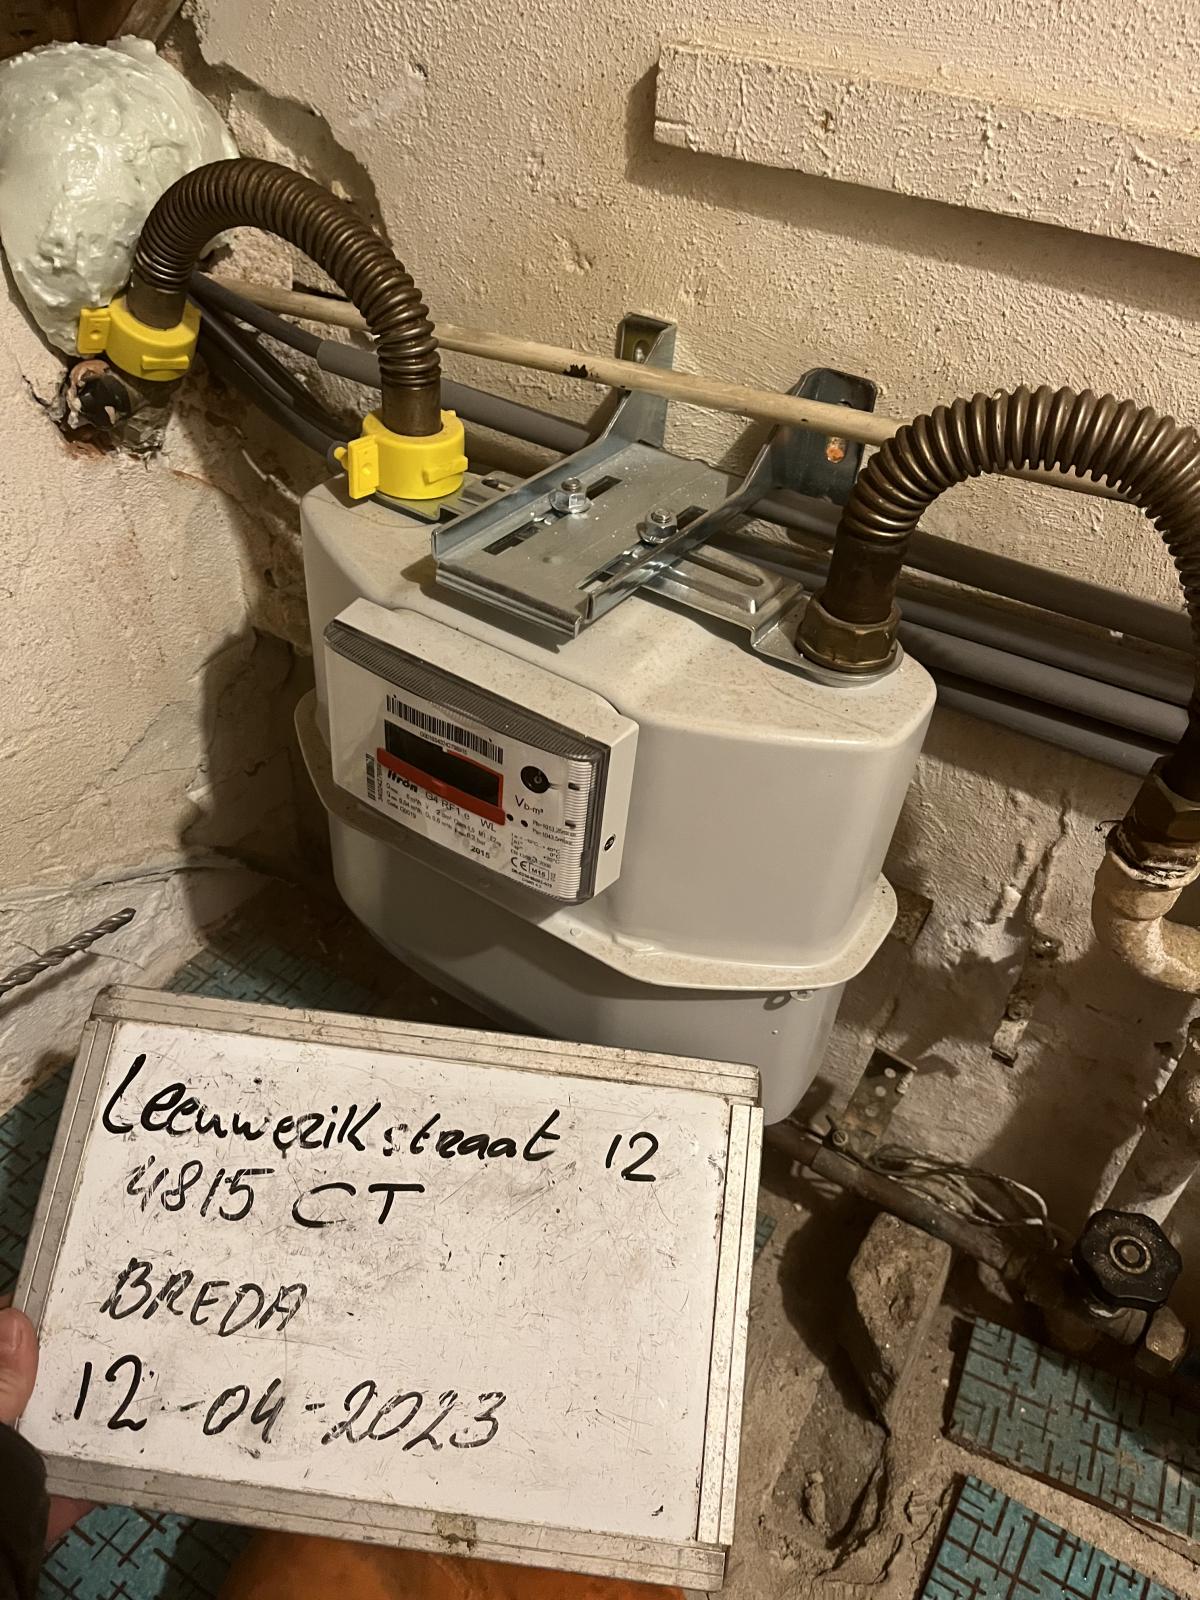 Itron
G4 RF1 e WL
Vb-m³
2015
CE M15
Leeuwerikstraat 12
4815 CT
BREDA
12-04-2023